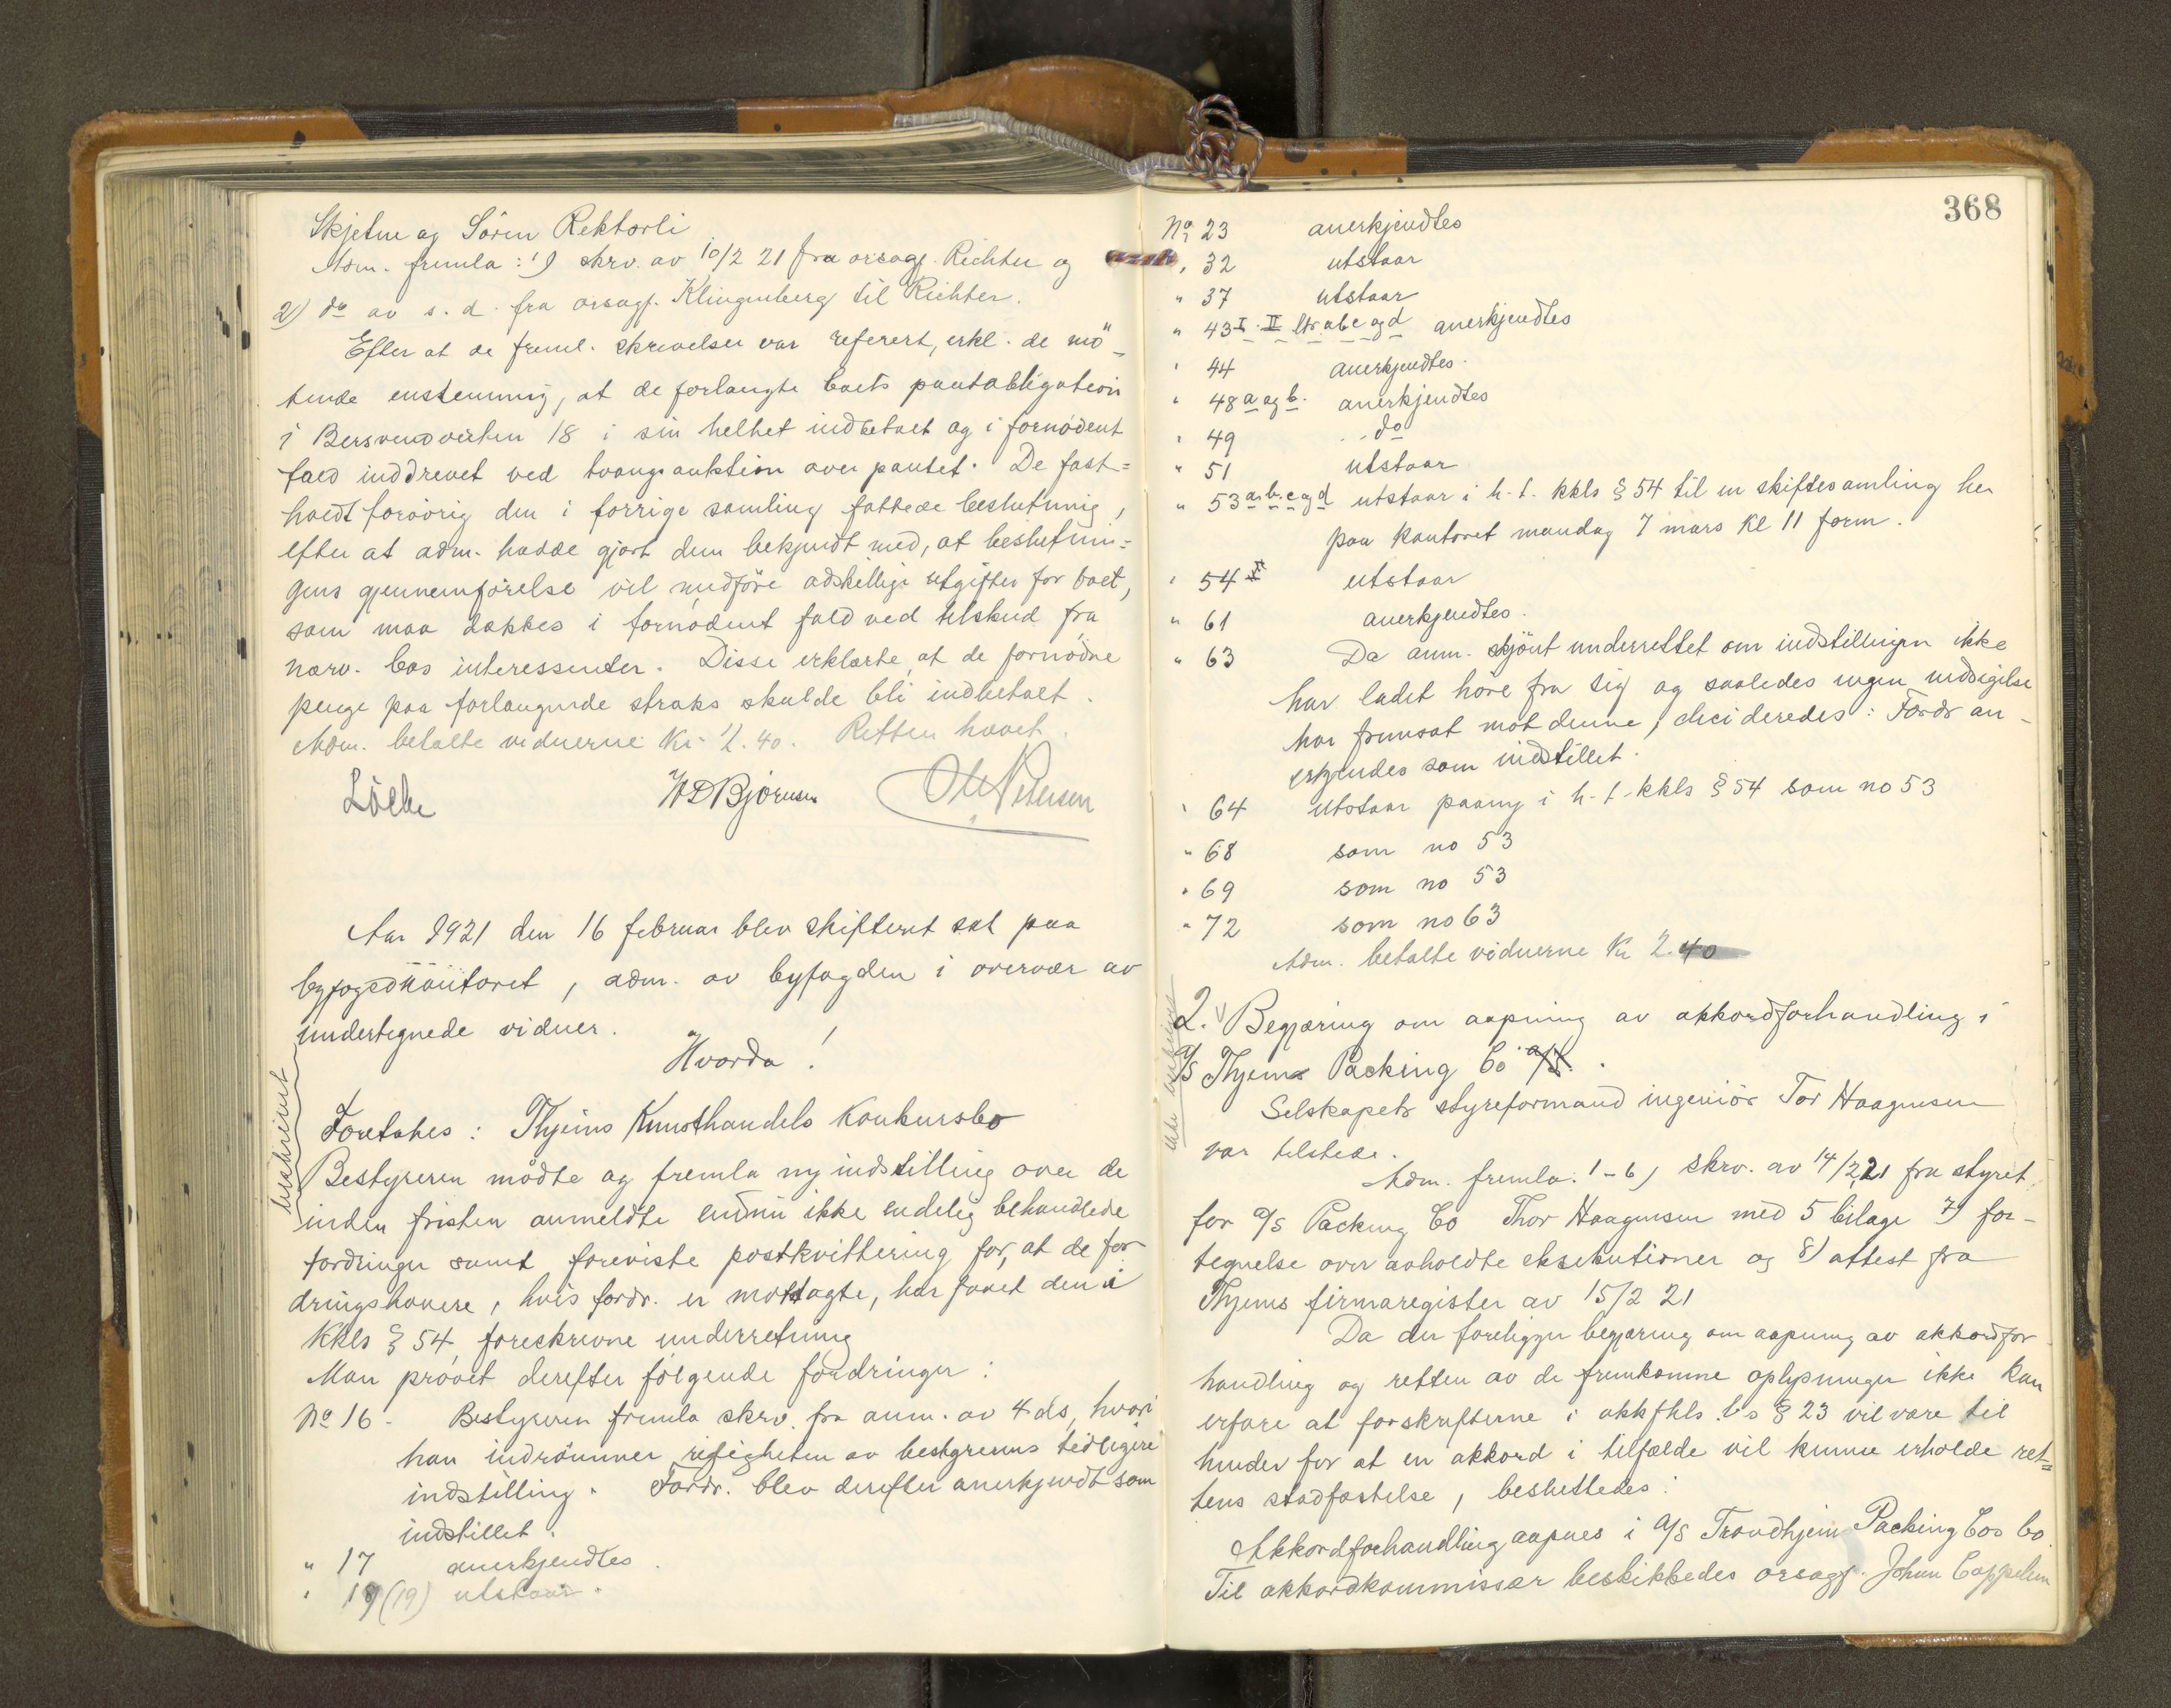 Skjetne og Sören Rektorli
Adm. fremla: 1) skrv. av 10/2 21 fra orsagf. Richter og
2) do av s. d. fra orsagf. Klingenberg til Richter.
Efter at de freml. skrivelser var referert, erkl. de mö-
tende enstemmig, at de forlangte boets pantobligation
i Bersvendveiten 18 i sin helhet indbetalt og i fornödent
fald inddrevet ved tvangsauktion over pantet. De fast=
holdt forövrig den i forrige samling fattede beslutning,
efter at adm. hadde gjort dem bekjendt med, at beslutnin=
gens gjennemförelse vil medföre adskillige utgifter for boet,
som maa dækkes i fornödent fald ved tilskud fra
nærv. bos interessenter. Disse erklærte, at de fornödne
penge paa forlangende straks skulde bli indbetalt.
Adm. betalte vidnerne Kr 2.40. Retten hævet.
H D Björnsen Ole Petersen
Aar 1921 den 16 februar blev skifteret sat paa
byfogedkontoret, adm. av byfogden i overvær av
undertegnede vidner.
Hvorda!
beskrevet
Foretakes: Thjems Kunsthandels Konkursbo
Bestyreren mödte og fremla ny indstilling over de
inden fristen anmeldte endnu ikke endelig behandlede
fordringer samt foreviste postkvittering for, at de for
dringshavere, hvis fordr. er mottagte, har faaet den i
Kkls § 54 foreskrevne underretning
Man prövet derefter følgende fordringer:
No 16 - Bestyreren fremla skrv. fra anm. av 4 ds, hvori
han indrömmer rigtigheten av bestyrerens tidligere
indstilling. Fordr. blev derefter anerkjendt som
indstillet.
" 17 anerkjendtes.
" 18 (19) utstaar.
368
No 23 anerkjendtes
" 32 utstaar
" 37 utstaar
" 43 I. II ltr. a b c og d anerkjendtes
" 44 anerkjendtes.
" 48 a og b. anerkjendtes
" 49 do
" 51 utstaar
" 53 a. b. c og d utstaar i h. t. kkls § 54 til en skiftesamling her
paa kontoret mandag 7 mars kl 11 form.
" 54 utstaar
" 61 anerkjendtes.
" 63 Da anm. skjönt underrettet om indstillingen ikke
har ladet höre fra sig og saaledes ingen indsigelse
har fremsat mot denne, decideredes: Fordr an-
erkjendes som indstillet.
" 64 utstaar paany i h. t. kkls § 54 som no 53
" 68 som no 53
" 69 som no 53
" 72 som no 63
Adm. betalte vidnerne Kr 2.40
2. Begjæring om aapning av akkordforhandling i
A/S Thjems Packing Co A/S.
Selskapets styreformand ingeniör Tor Haagensen
var tilstede.
Adm. fremla: 1-6) skrv. av 14/2 21 fra styret
for A/S Packing Co Thor Haagensen med 5 bilage 7) for-
tegnelse over avholdte eksekutioner og 8) attest fra
Thjems firmaregister av 15/2 21
Da der foreligger begjæring om aapning av akkordfor
handling og retten av de fremkomne oplysninger ikke kan
erfare at forskrifterne i akkfhls bs § 23 vil være til
hinder for at en akkord i tilfælde vil kunne erholde ret=
tens stadfæstelse, besluttedes:
Akkordforhandling aapnes i A/S Trondhjem Packing Cos bo.
Til akkordkommissær beskikkedes orsagf. Johan Cappelen